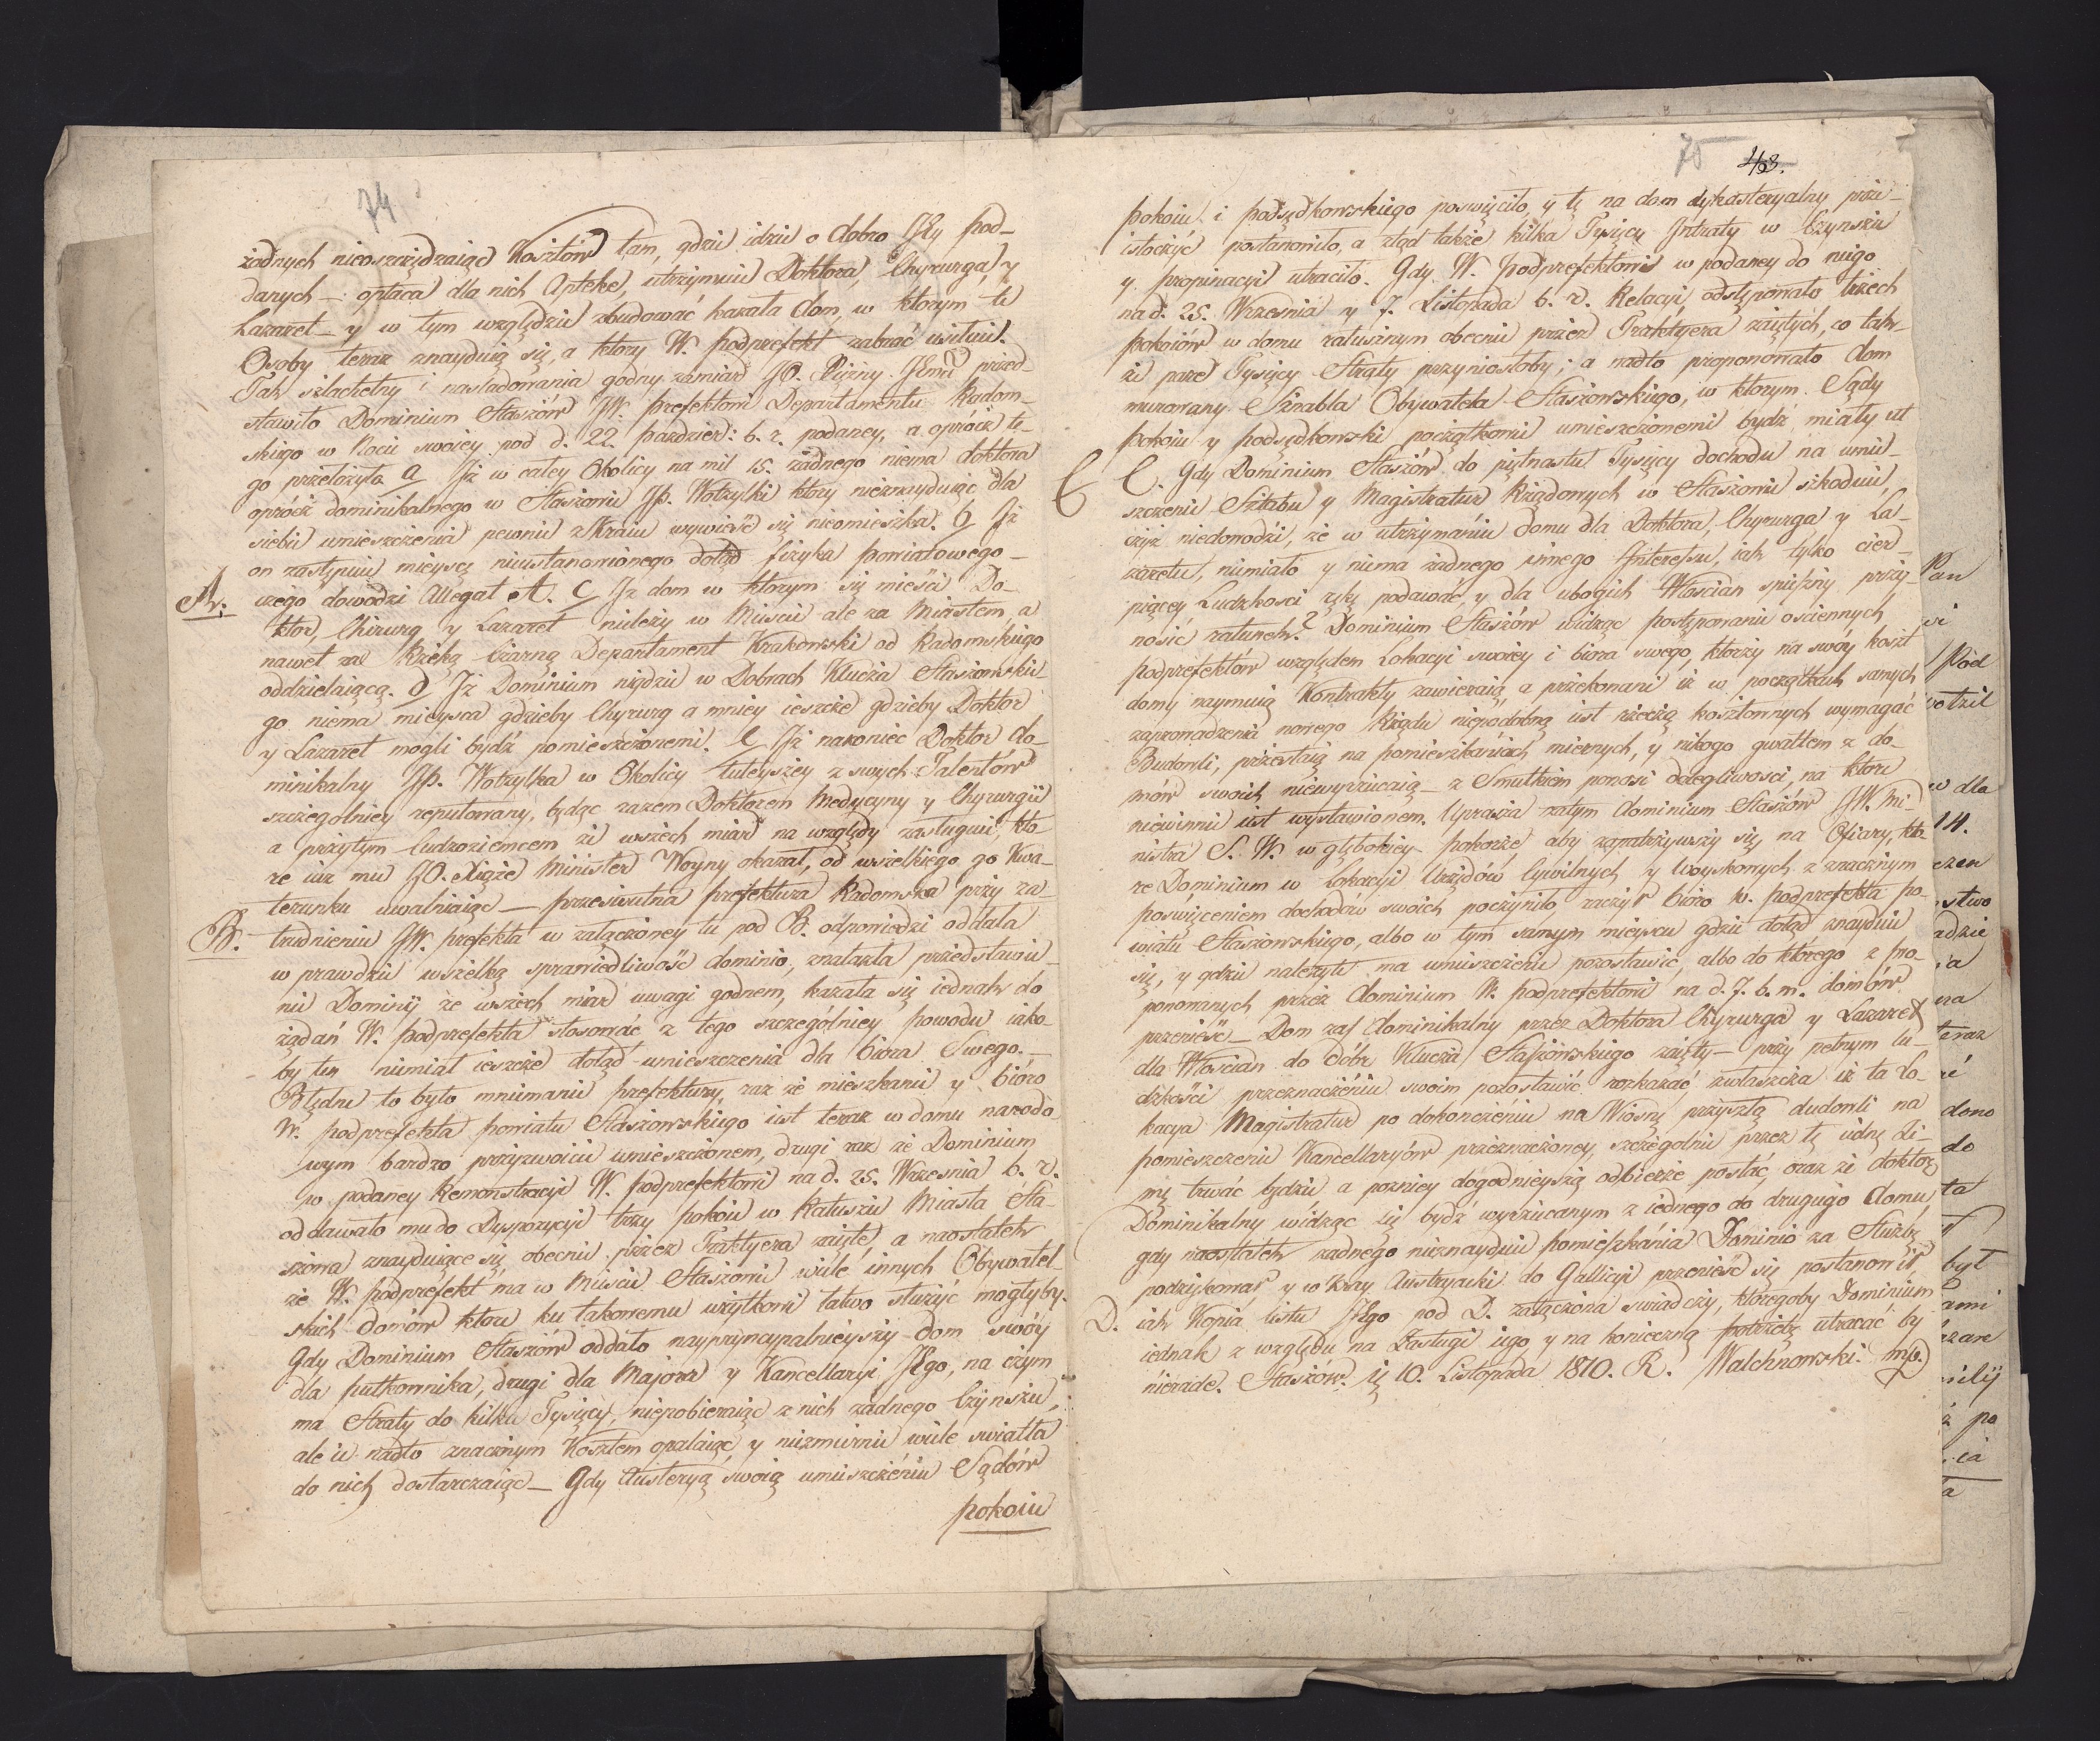 74
żadnych nieoszczędzaiąc Kosztów tam, gdzie idzie o dobro JEy pod-
danych — opłaca dla nich Aptekę, utrzymuie Doktora, Chyrurga, y
Lazaret — y w tym względzie zbudować kazała dom, w ktorym te
Osoby teraz znayduią się, a ktory W. Podprefekt zabrać usiłuie.
Tak szlachetny i naśladowania godny zamiar JO. Xiężny JEmci przed-
stawiło Dominium Staszów JW. Prefektowi Departamentu Radom-
skiego w Nocie swoiey pod d. 22. Paździer: b. r. podaney, a oprócz te-
go przełożyło a Jż w całey Okolicy na mil 15. żadnego niema doktora
oprócz dominikalnego w Staszowie JP. Wotzylki ktory nieznayduiąc dla
siebie umieszczenia pewnie z Kraiu wywieść się nieomieszka. b Jż
on zastępuie mieysce nieustanowionego dotąd fizyka Powiatowego —
A. czego dowodzi Allegat A. c Jż dom w ktorym się mieści Do-
ktor, Chirurg y Lazaret nieleży w Mieście ale za Miastem, a
nawet za Rzeką Czarną Departament Krakowski od Radomskiego
oddzielaiącą. d Jż Dominium nigdzie w Dobrach Klucza Staszowskie-
go niema mieysca gdzieby Chyrurg a mniey ieszcze gdzieby Doktor
y Lazaret mogli bydź pomieszczonemi. e Jż nakoniec Doktor do-
minikalny JP. Wotzylka w Okolicy tuteyszey z swych Talentów
szczegolniey reputowany, będąc razem Doktorem Medycyny y Chyrurgii
a przytym Cudzoziemcem ze wszech miar na względy zasługuie, któ-
re iuż mu JO. Xiąże Minister Woyny okazał, od wszelkiego go Kwa-
terunku uwalniaiąc — Prześwietna Prefektura Radomska przy za-
B. trudnieniu JW. Prefekta w załączoney tu pod B. odpowiedzi oddała
w prawdzie wszelką sprawiedliwość dominio, znalazła przedstawie-
nie Dominij ze wszech miar uwagi godnem, kazała się iednak do
żądań W. Podprefekta stosować z tego szczególniey powodu iako-
by ten niemiał ieszcze dotąd umieszczenia dla bióra Swego. —
Błędne to było mniemanie Prefektury, raz że mieszkanie y bióro
W. Podprefekta Powiatu Staszowskiego iest teraz w domu narodo-
wym bardzo przyzwoicie umieszczonem, drugi raz że Dominium
w podaney Remonstracyi W. Podprefektowi na d. 25. Września b. r.
oddawało mu do Dyspozycyi trzy pokoie w Ratuszu Miasta Sta-
szowa znayduiące się, obecnie przez Traktyera zaięte, a naostatek
że W. Podprefekt ma w Mieście Staszowie wiele innych Obywatel-
skich domów ktore ku takowemu użytkowi łatwo służyć mogłyby.
Gdy Dominium Staszów oddało nayprincypalnieyszy dom swóy
dla Pułkownika, drugi dla Majora y Kancellaryi JEgo, na czym
ma Straty do kilku Tysięcy, niepobieraiąc z nich żadnego Czynszu,
ale ie nadto znacznym Kosztem opalaiąc y niezmiernie wiele światła
do nich dostarczaiąc — Gdy Austeryą swoią umieszczeniu Sądów
pokoiu
75 463.
pokoiu i podsędkowskiego poswięciło, y tę na dom dykasteryalny prze-
istoczyć postanowiło, a ztąd także kilka Tysięcy Intraty w Czynszu
y propinacyi utraciło. Gdy W. Podprefektowi w podaney do niego
na d. 25. Września y 7. Listopada b. r. Relacyi, odstępowało trzech
pokoiów w domu ratusznym obecnie przez Traktyera zaiętych, co tak-
że parę Tysięcy Straty przyniosłoby; a nadto proponowało dom
murowany Sznabla Obywatela Staszowskiego, w ktorym Sądy
Pokoiu y Podsędkowski początkowie umieszczonemi bydź miały ut
C C. Gdy Dominium Staszów do piętnastu Tysięcy dochodu na umie-
szczeniu Sztabu y Magistratur Rządowych w Staszowie szkoduie,
czyż niedowodzi, że w utrzymaniu domu dla Doktora, Chyrurga y La-
zaretu, niemiało y niema żadnego innego Interessu, iak tylko cier-
piącey Ludzkości rękę podawać, y dla ubogich Włościan spieszny przy-
nosić ratunek? Dominium Staszów widząc postępowanie ościennych
Podprefektów względem Lokacyi swoiey i biura swego, którzy na swóy koszt
domy naymuią Kontrakty zawieraią, a przekonani iż w początkach samych
zaprowadzenia nowego Rządu niepodobną iest rzeczą kosztownych wymagać
Budowli, przestaią na pomieszkaniach miernych, y nikogo gwałtem z do-
mów swoich niewyrzucaią — z Smutkiem ponosi dolegliwości, na ktore
niewinnie iest wystawionem. Uprasza zatym dominium Staszów JW. Mi-
nistra S. W. w głębokiey pokorze, aby zapatrzywszy się, na Ofiary, któ-
re Dominium w Lokacyi Urzędów Cywilnych y Woyskowych z znacznym
poświęceniem dochodów swoich poczyniło, raczył bióro W. Podprefekta Po-
wiatu Staszowskiego, albo w tym samym mieyscu gdzie dotąd znayduie
się, y gdzie należyte ma umieszczenie pozostawić, albo do którego z pro-
ponowanych przez Dominium W. Podprefektowi na d. 7. b. m. domów
przenieść — Dom zaś dominikalny przez Doktora Chyrurga y Lazaret
dla Włościan do Dóbr Klucza Staszowskiego zaięty — przy pełnym lu-
dzkości przeznaczeniu swoim pozostawić rozkazać, zwłaszcza iż ta Lo-
kacya Magistratur po dokończeniu na Wiosnę przyszłą dudowli na
pomieszczenie Kancellaryów przeznaczoney, szczególnie przez tę iednę Zi-
mę trwać będzie a pozniey dogodnieyszą odbierze postać, oraz że doktor
Dominikalny widząc się bydź wyrzucanym z iednego do drugiego domu
gdy naostatek żadnego nieznayduie pomieszkania Dominio za Służbę
podziękował y w Kray Austryacki do Gallicyi przenieść się postanowił,
D. iak Kopia listu JEgo pod D. załączona świadczy, któregoby Dominium
iednak z względu na Zasługi iego, y na konieczną potrzebę utracać by
nierade. Staszów. d. 10. Listopada 1810. R. Walchnowski. mp.